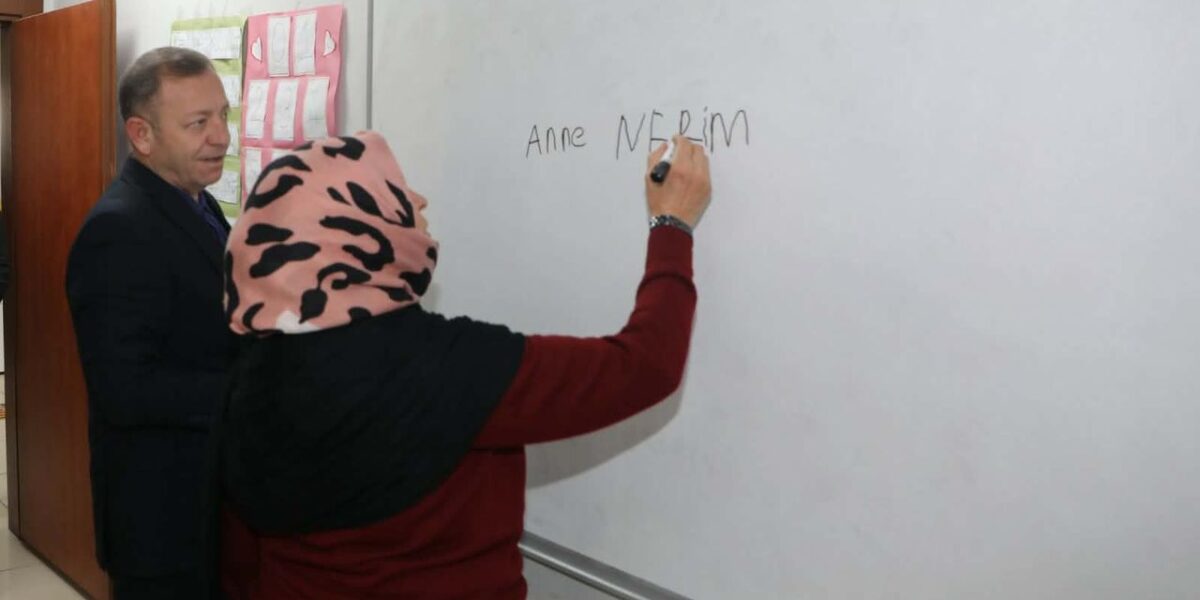 Anne NERİM